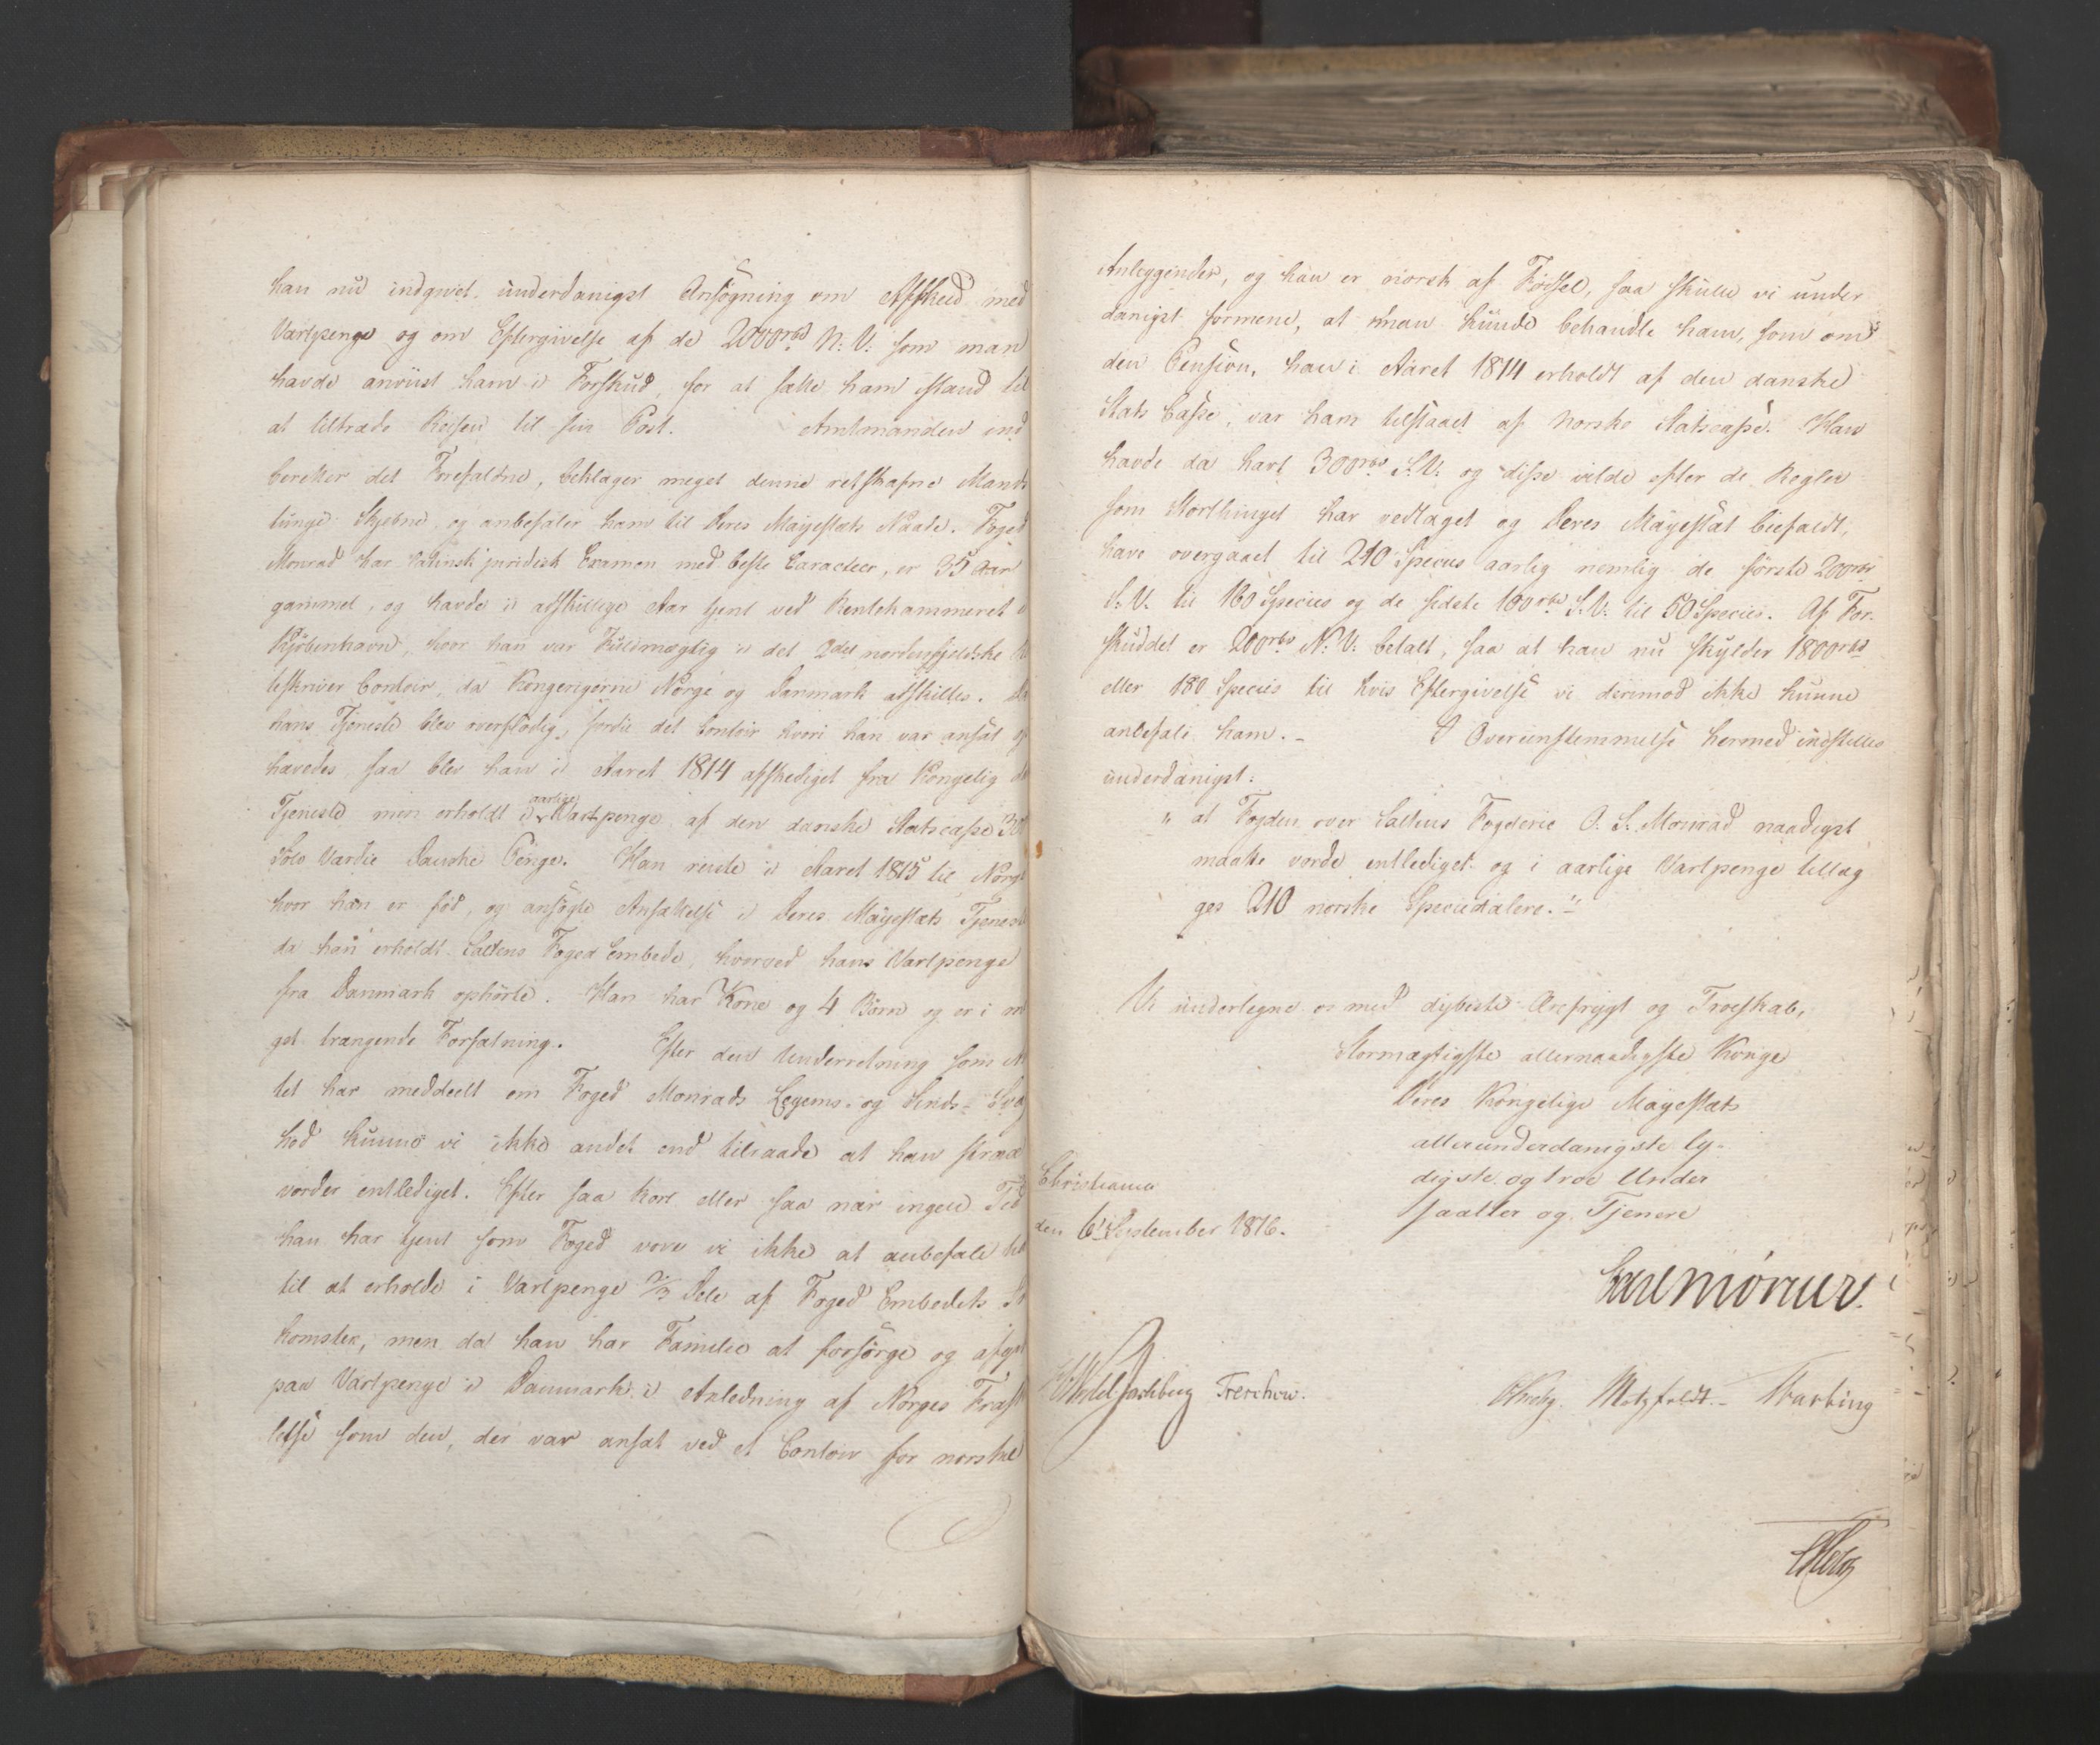 han nu indgivet underdanigst Ansögning om Afskeed med
Vartpenge og om Eftergivelse af de 2000 rbd N: V: som man
havde anviist ham i Forskud, for at sætte ham istand til
at tiltræde Reisen til sin Post. Amtmanden ind
beretter det Forefaldne, beklager meget denne retskafne Mands
tunge Skjebne, og anbefaler ham til Deres Majestæts Naade. Foged
Monrad har Latinsk juridisk Examen med beste Caracteer, er 35 Aar
gammel, og havde i adskillige Aar tjent ved Rentekammeret i
Kjöbenhavn, hvor han var Fuldmægtig i det 2det nordenfjeldske
teskriver Contoir, da Kongerigerne Norge og Danmark adskilles. Da
hans Tjeneste blev overflödig, fordie det Contoir hvori han var ansat op
hævedes, saa blev han i Aaret 1814 afskediget fra Kongelig da
Tjeneste men erholdt i aarlige Vartpenge af den danske Statscasse 300
Sölv Værdie Danske Penge. Han reiste i Aaret 1815 til Norge
hvor han er föd, og ansögte Ansættelse i Deres Majestæts Tjeneste
da han erholdt Saltens Foged Embede, hvorved hans Vartpenge
fra Danmark ophörte. Han har Kone og 4 Börn og er i me
get trængende Forfatning. Efter den Underretning som A
tet har meddeelt om Foged Monrads Legems- og Sinds- Svag
hed kunne vi ikke andet end tilraade at han strax
vorder entlediget. Efter saa kort eller saa nær ingen Tid
han har tjent som Foged vove vi ikke at anbefale ham
til at erholde i Vartpenge 2/3 Dele af Foged Embedets In
komster, men da han har Familie at forsörge og afgik
paa Vartpenge i Danmark i Anledning af Norges Frask
lelse som den, der var ansat ved et Contoir for norske
Anleggender, og han er norsk af Födsel, saa skulle vi under
danigst formene, at man kunde behandle ham, som om
den Pension, han i Aaret 1814 erholdt af den danske
Stats Casse, var ham tilstaaet af Norske Statscasse. Han
havde da havt 300 rbd S.V. og disse vilde efter de Regler
som Storthinget har vedtaget og Deres Majestæt biefaldt,
have overgaaet til 210 Species aarlig nemlig de förste 200 rbd
S.V. til 160 Species og de sidste 100 rbd S.V. til 50 Species. Af For-
skuddet er 200 rbd N. V: betalt, saa at han nu skylder 1800 rbd
eller 180 Species til hvis Eftergivelse vi derimod ikke kunne
anbefale ham. _ I Overeenstemmelse hermed indstilles
underdanigst:
" at Fogden over Saltens Fogderie O. S. Monrad naadigst
maatte vorde entlediget og i aarlige Vartpenge tillæg
ges 210 norske Speciedalere. "
Vi undertegne os med dybeste Ærefrygt og Troeskab,
Stormægtigste allernaadigste Konge
Deres Kongelige Majestæts
allerunderdanigste ly-
digste og troe Under
saatter og Tjenere
Christiania
den 6' September 1816.
Carl Mörner.
H Wedel Jarlsberg Treschow. Motzfeldt. -